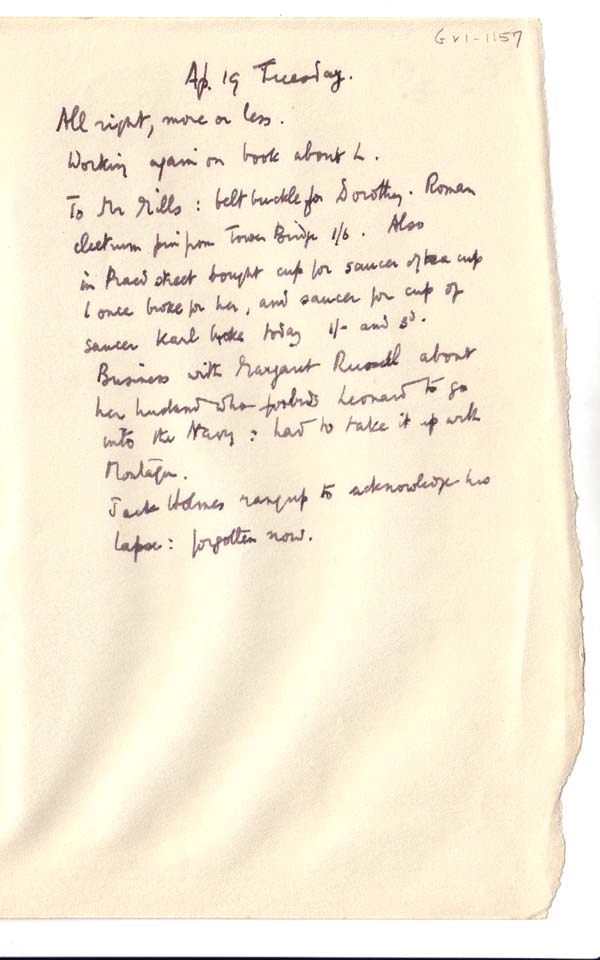 G VI - 1157
Ap. 19 Tuesday.
All right, more or less.
Working again on book about L.
To Mr Mills: belt buckle for Dorothy. Roman
electrum pin from Tower Bridge 1/6. Also
in Praed street bought cup for saucer of tea cup
I once broke for her, and saucer for cup of
saucer Karl broke today 1/- and 3d.
Business with Margaret Russell about
her husband who forbids Leonard to go
into the Navy: had to take it up with
Montagu.
Jack Holmes rang up to acknowledge his
lapse: forgotten now.